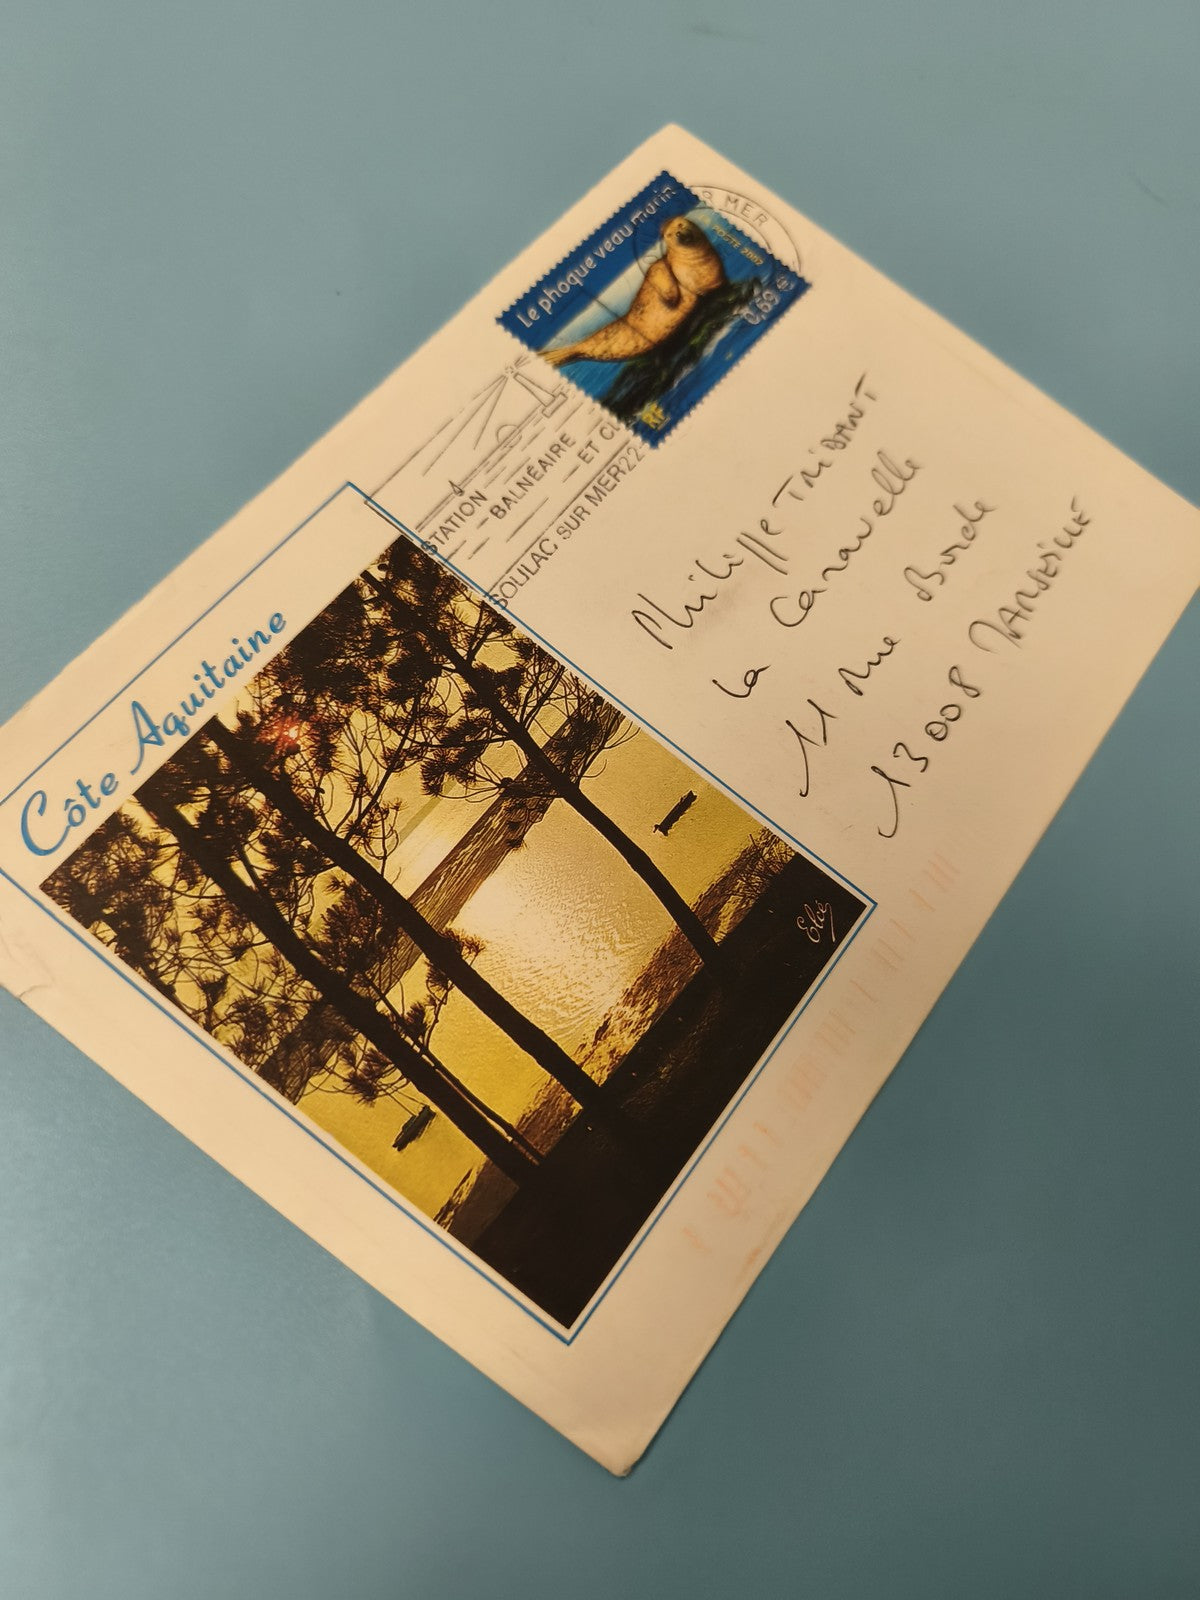 Le phoque veau marin
POSTE 2002
0,59 €
RF
R MER
STATION
BALNÉAIRE
ET CL
SOULAC SUR MER 22-
Philippe TRIDANT
La Caravelle
11 Rue Borde
13008 MARSEILLE
Côte Aquitaine
Eloé